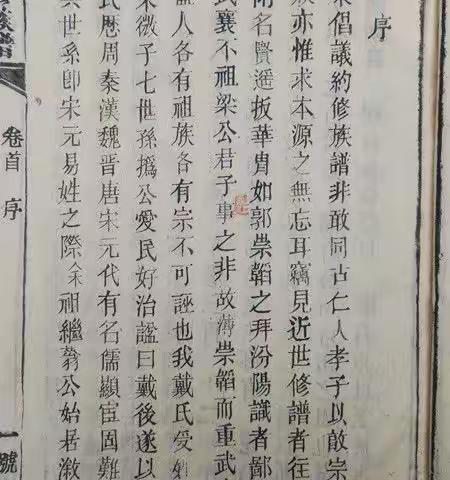 序
倡議約修族譜非敢同古仁人孝子以敢宗
族亦惟求本源之無忘耳竊見近世修譜者往
名賢遥扳華胄如郭崇韜之拜汾陽識者鄙
武襄不祖梁公君子事之非故薄崇韜而重武
是
人各有祖族各有宗不可誣也我戴氏受姓
宋微子七世孫撝公愛民好治謚曰戴後遂以
氏歷周秦漢魏晉唐宋元代有名儒顯宦固難
世系卽宋元易姓之際余祖繼公始居
族譜
卷首 序
一號